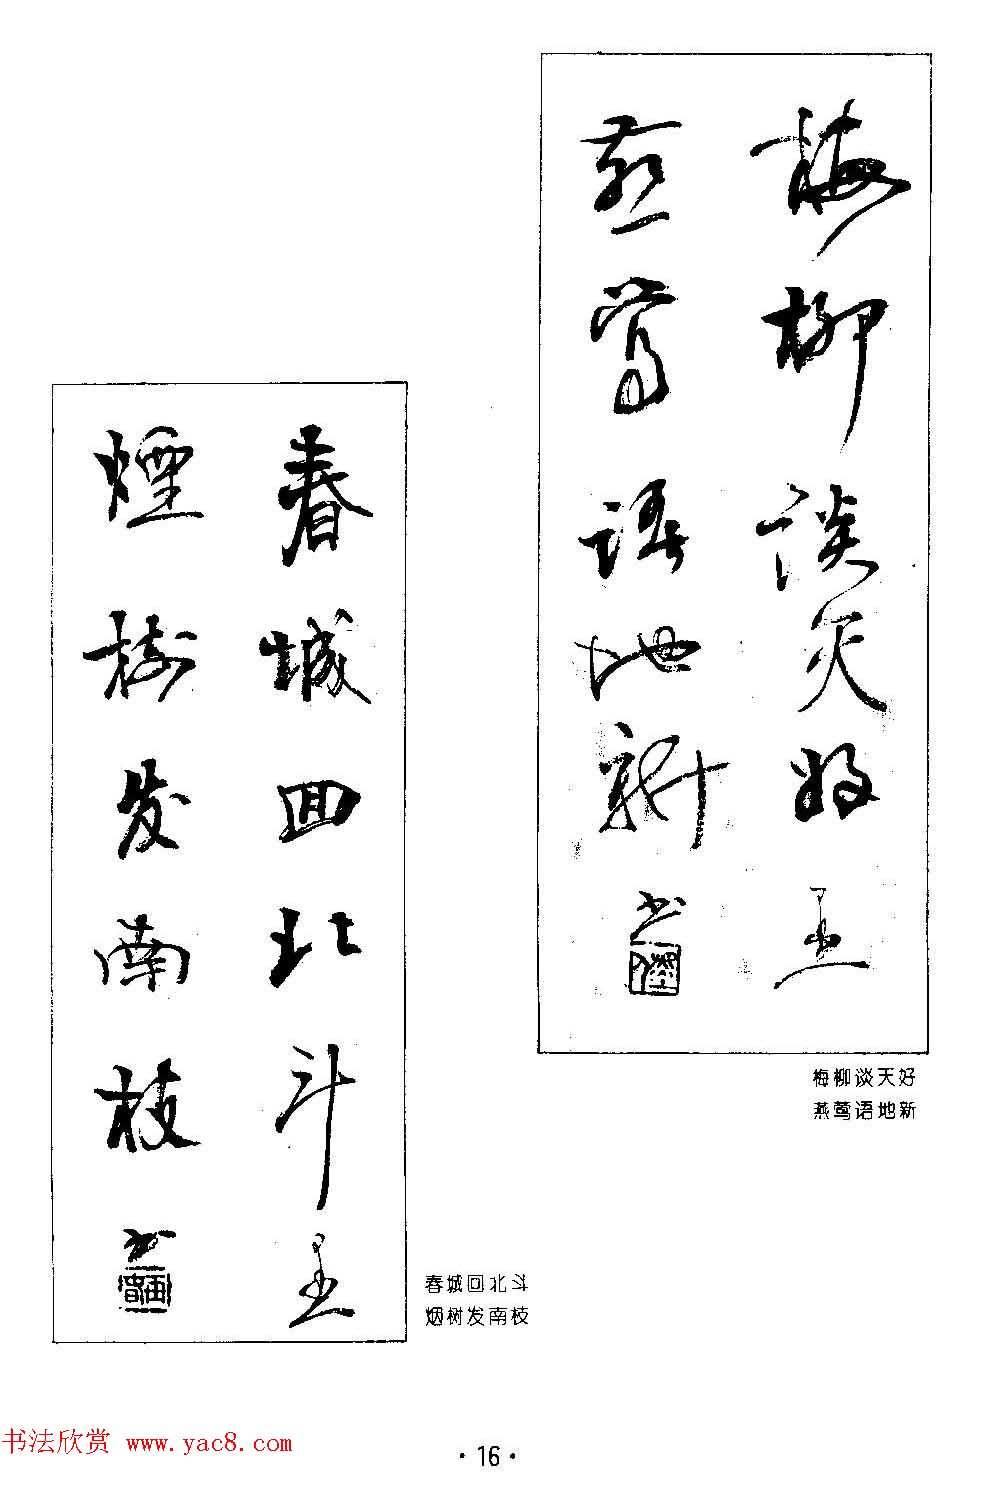 梅柳谈天好
燕莺语地新
书
梅柳谈天好
燕莺语地新
春城回北斗
煙树发南枝
书
春城回北斗
烟树发南枝
书法欣赏 www.yac8.com
·16·